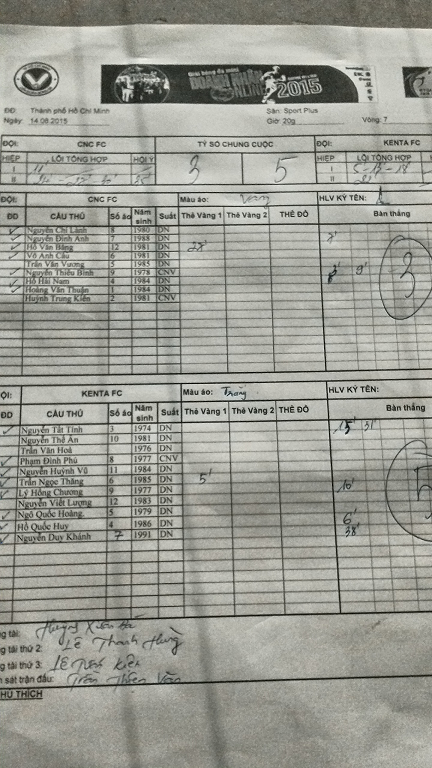 Giải bóng đá mini
DOANH NHÂN
ONLINE 2015
ĐĐ: Thành phố Hồ Chí Minh Sân: Sport Plus
Ngày: 14.08.2015 Giờ: 20g Vòng: 7
ĐỘI: CNC FC TỶ SỐ CHUNG CUỘC ĐỘI: KENTA FC
HIỆP LỖI TỔNG HỢP HỘI Ý 3 5 HIỆP LỖI TỔNG HỢP
I
II
ĐỘI: CNC FC Màu áo: HLV KÝ TÊN:
ĐD CẦU THỦ Số áo Năm sinh Suất Thẻ Vàng 1 Thẻ Vàng 2 THẺ ĐỎ Bàn thắng
Nguyễn Chí Lành 8 1980 DN
Nguyễn Đình Anh 7 1988 DN 7'
Hồ Văn Bằng 12 1981 DN 28'
Võ Anh Cầu 6 1981 DN
Trần Văn Vương 5 1985 DN
Nguyễn Thiều Bình 9 1978 CNV 9' 3
Hồ Hải Nam 4 1984 DN
Hoàng Văn Thuận 1 1984 DN
Huỳnh Trung Kiên 2 1981 CNV
ỘI: KENTA FC Màu áo: Trắng HLV KÝ TÊN:
ĐD CẦU THỦ Số áo Năm sinh Suất Thẻ Vàng 1 Thẻ Vàng 2 THẺ ĐỎ Bàn thắng
Nguyễn Tất Tính 3 1974 DN 15' 31'
Nguyễn Thế Ân 10 1981 DN
Trần Văn Hoà 1976 DN
Phạm Đình Phú 8 1977 CNV
Nguyễn Huỳnh Vũ 11 1984 DN
Trần Ngọc Thăng 6 1985 DN 5'
Lý Hồng Chương 9 1977 DN 16' 5
Nguyễn Viết Lượng 12 1983 DN
Ngô Quốc Hoàng 5 1979 DN
Hồ Quốc Huy 4 1986 DN 6'
Nguyễn Duy Khánh 7 1991 DN 38'
g tài: Huỳnh Xuân
g tài thứ 2: Lê Thanh Hùng
g tài thứ 3: Lê Kiên
n sát trận đấu: Trần Thiện Văn
HÚ THÍCH